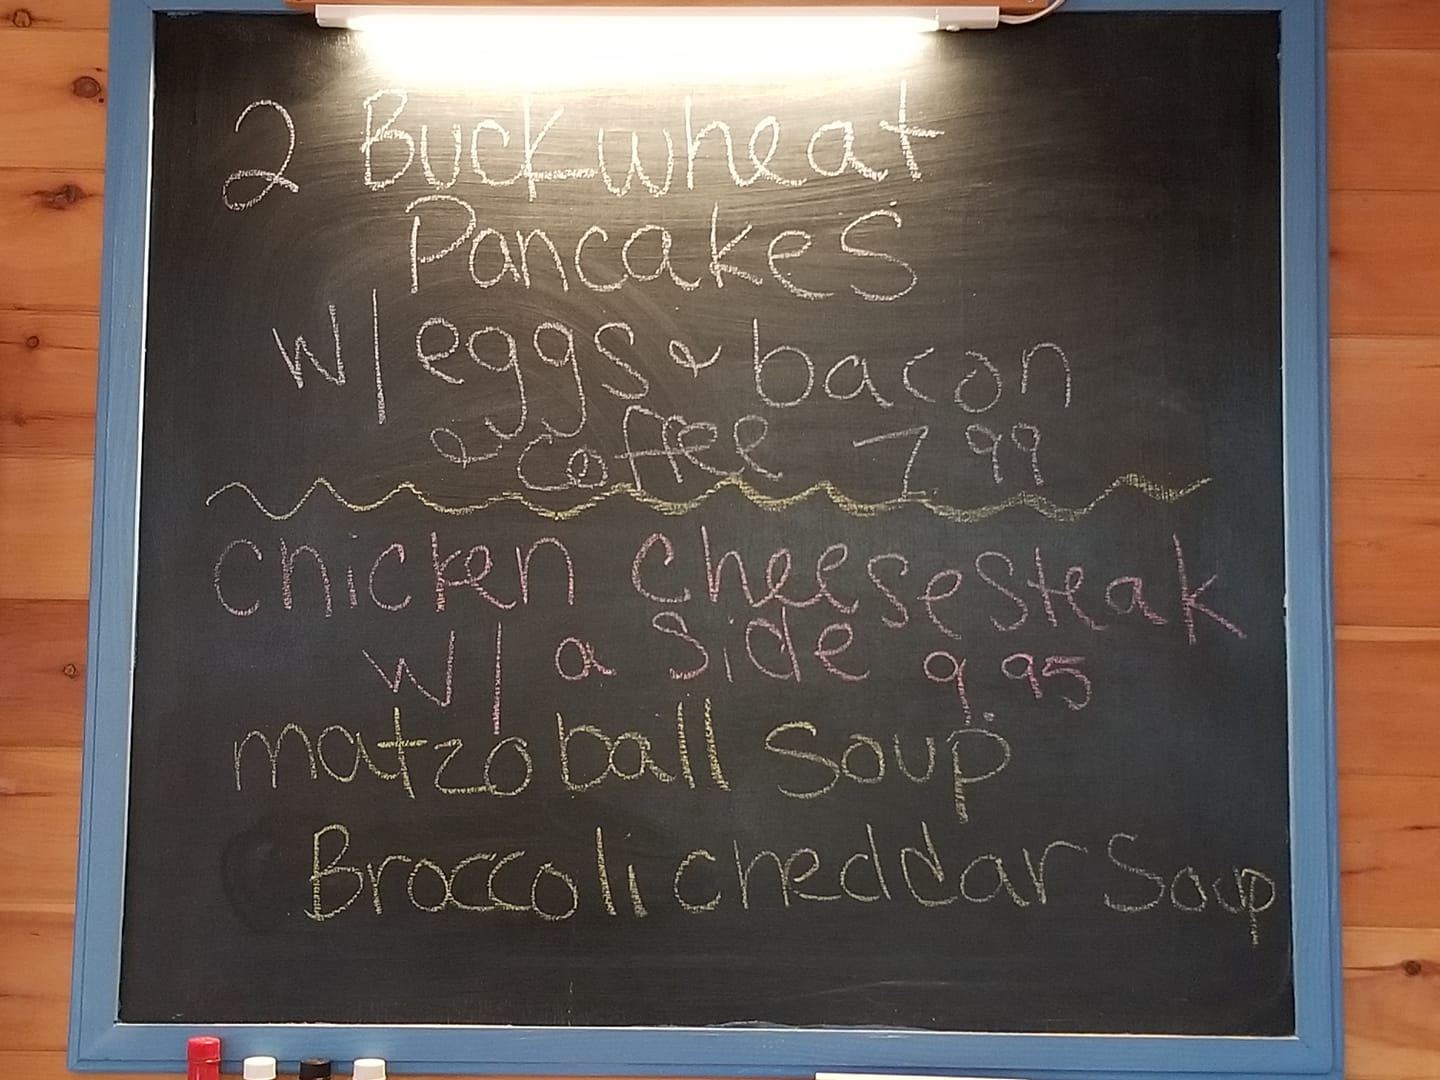 2 Buckwheat
Pancakes
w/ eggs & bacon
& coffee 7.99
Chicken Cheesesteak
w/ a Side 9.95
matzo ball Soup
Broccoli cheddar Soup